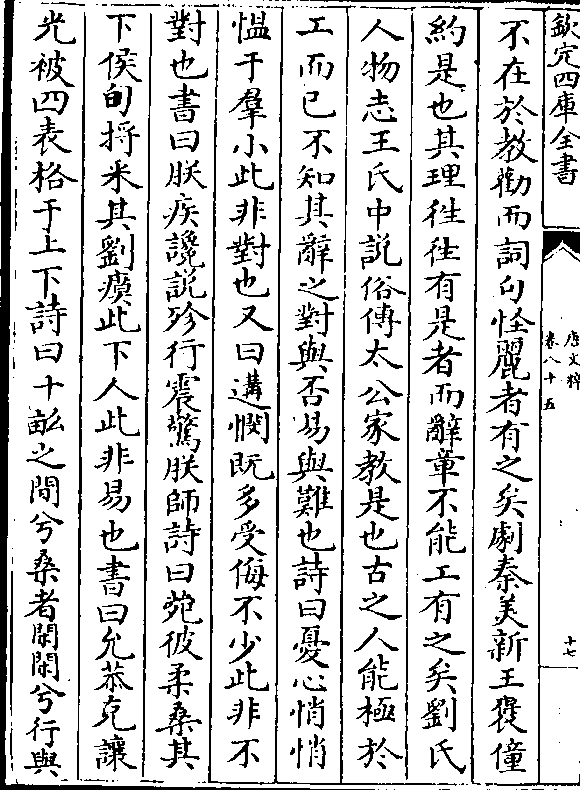 欽定四庫全書
唐文粹
卷八十五
十七
不在於教勸而詞句怪麗者有之矣劇秦美新王褒僮
約是也其理往往有是者而辭章不能工有之矣劉氏
人物志王氏中說俗傳太公家教是也古之人能極於
工而已不知其辭之對與否易與難也詩曰憂心悄悄
慍于羣小此非對也又曰遘憫既多受侮不少此非不
對也書曰朕疾讒說殄行震驚朕師詩曰菀彼柔桑其
下侯旬捋采其劉瘼此下人此非易也書曰允恭克讓
光被四表格于上下詩曰十畝之間兮桑者閑閑兮行與